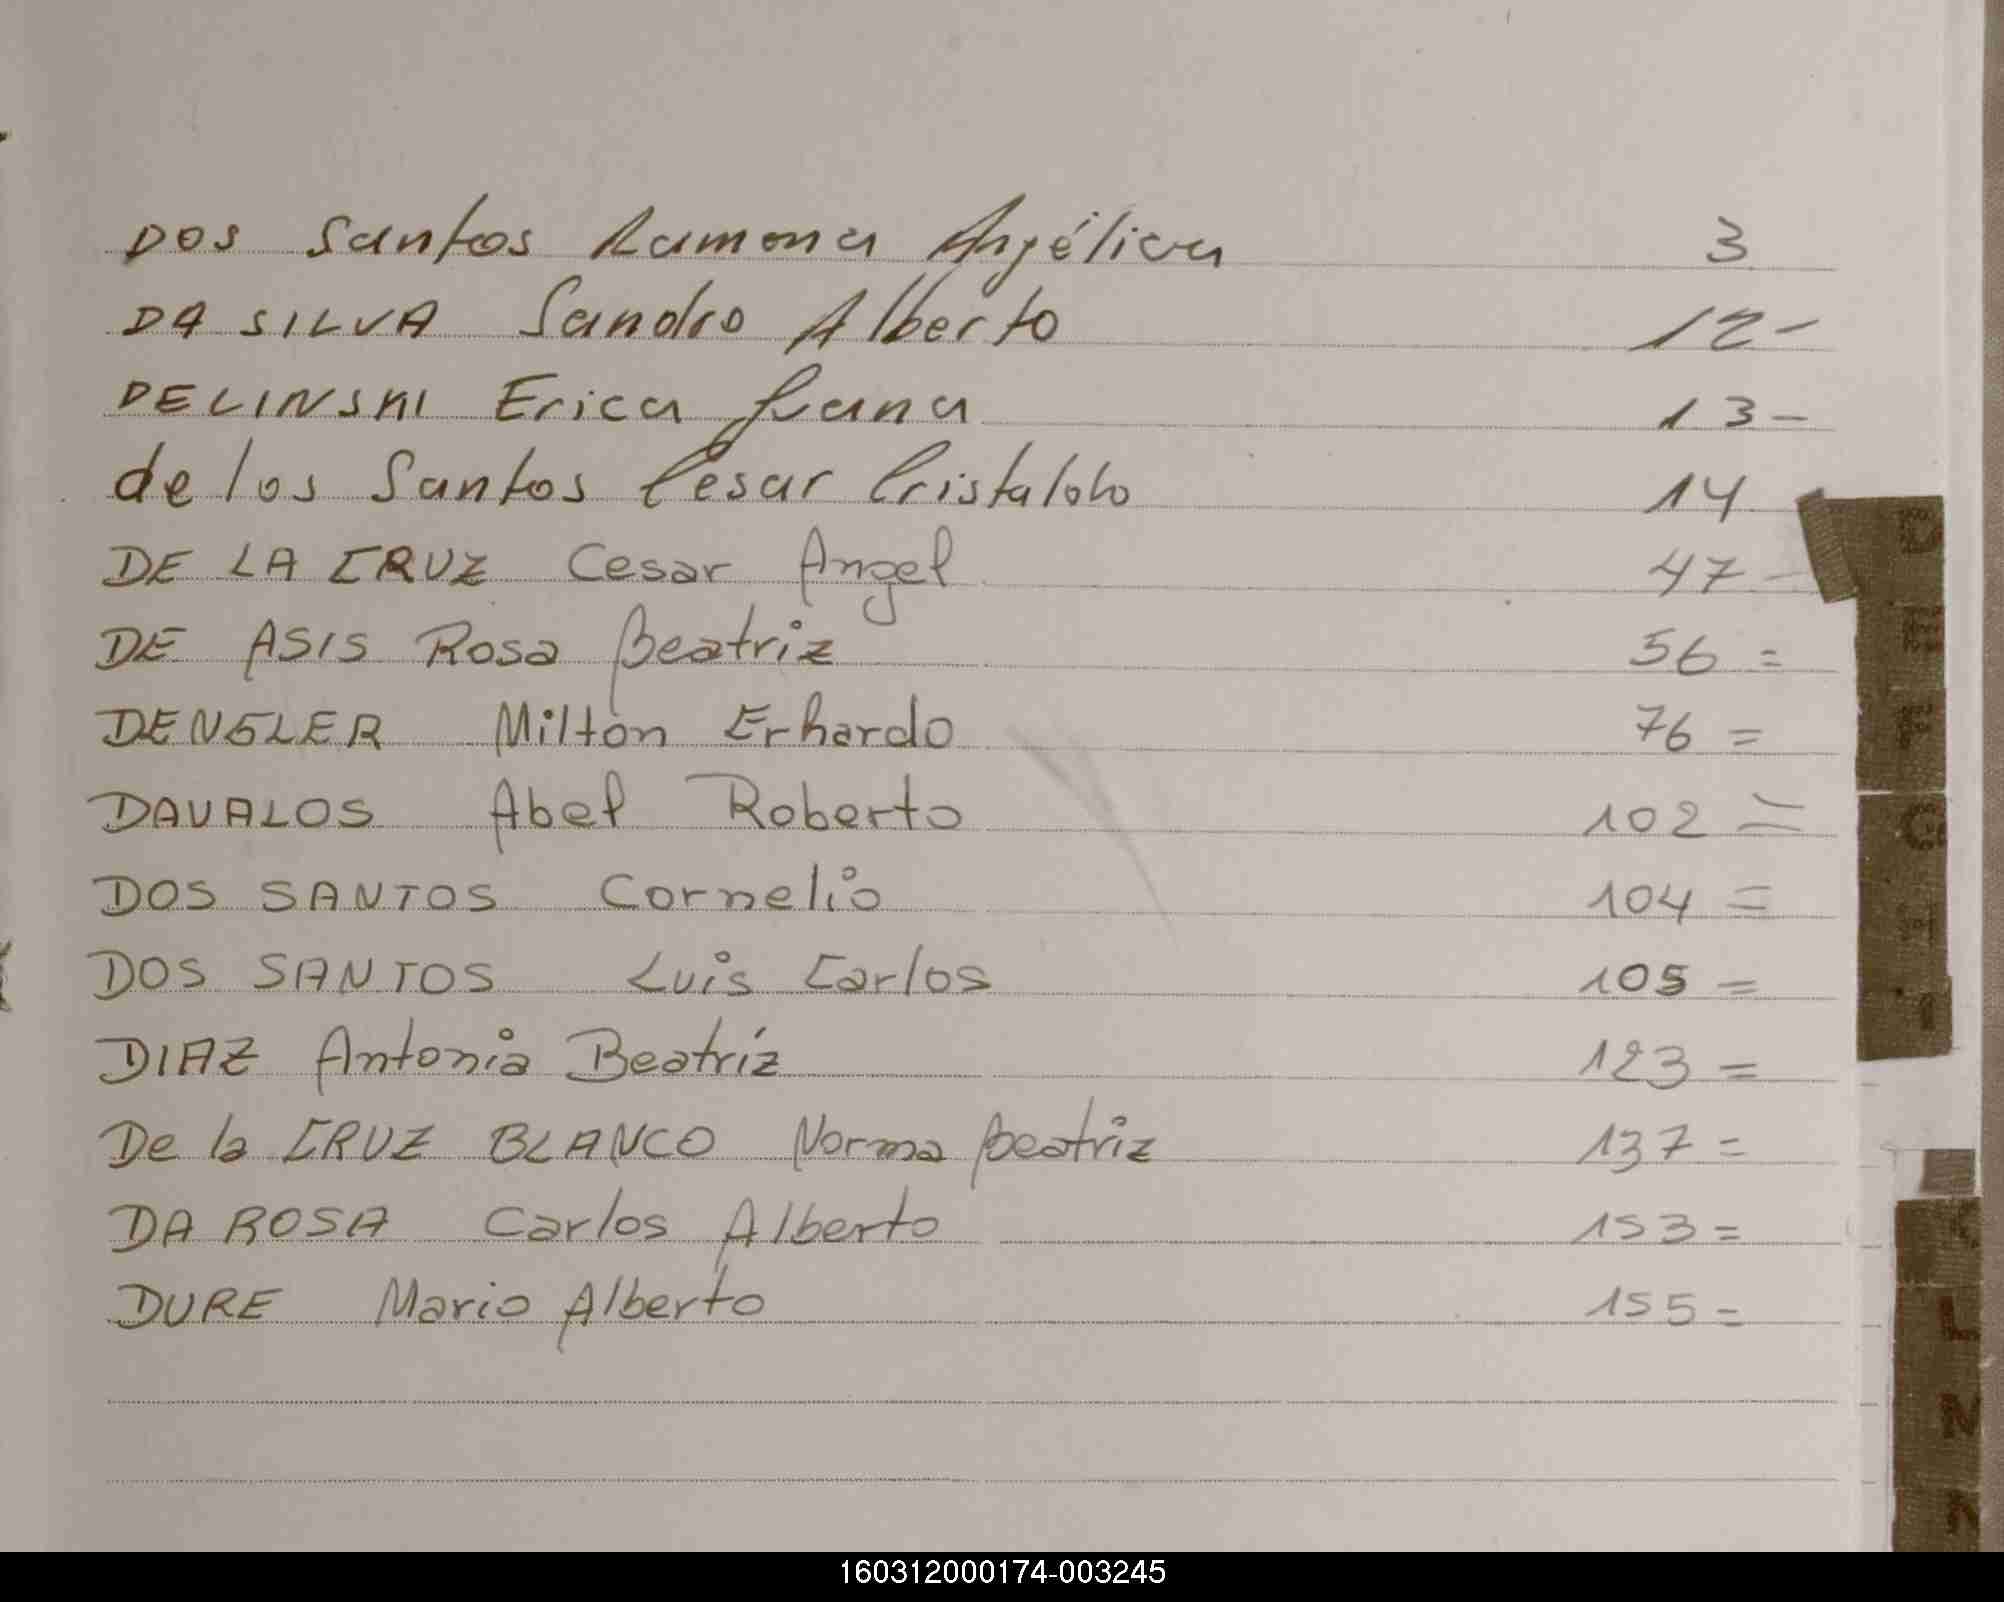 DOS Santos Ramona Angélica 3
DA SILVA Sandro Alberto 12-
DELINSKI Erica Juana 13-
de los Santos Cesar 14
DE LA CRUZ Cesar Angel 47-
DE ASIS Rosa Beatriz 56=
DENGLER Milton Erhardo 76=
DAVALOS Abel Roberto 102=
DOS SANTOS Cornelio 104=
DOS SANTOS Luis Carlos 105=
DIAZ Antonia Beatríz 123=
De la CRUZ BLANCO Norma Beatriz 137=
DA ROSA Carlos Alberto 153=
DURE Mario Alberto 155=
D
E
F
G
H
I
L
160312000174-003245